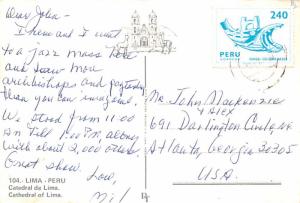 Dear John -
I hear and I went
to a jazz mass here
and saw mon
archbishops and pageantry
than you can imagine.
We stood from 11:00
on till 1:00 P.M. along
with about 2,000 others.
Great show.
Love,
104.- LIMA - PERU
Catedral de Lima.
Cathedral of Lima.
240
PERU
Mr. John Mackenzie
+ ALEX
691 Darlington Circle, Ne
Atlanta, Georgia 30305
U.S.A.